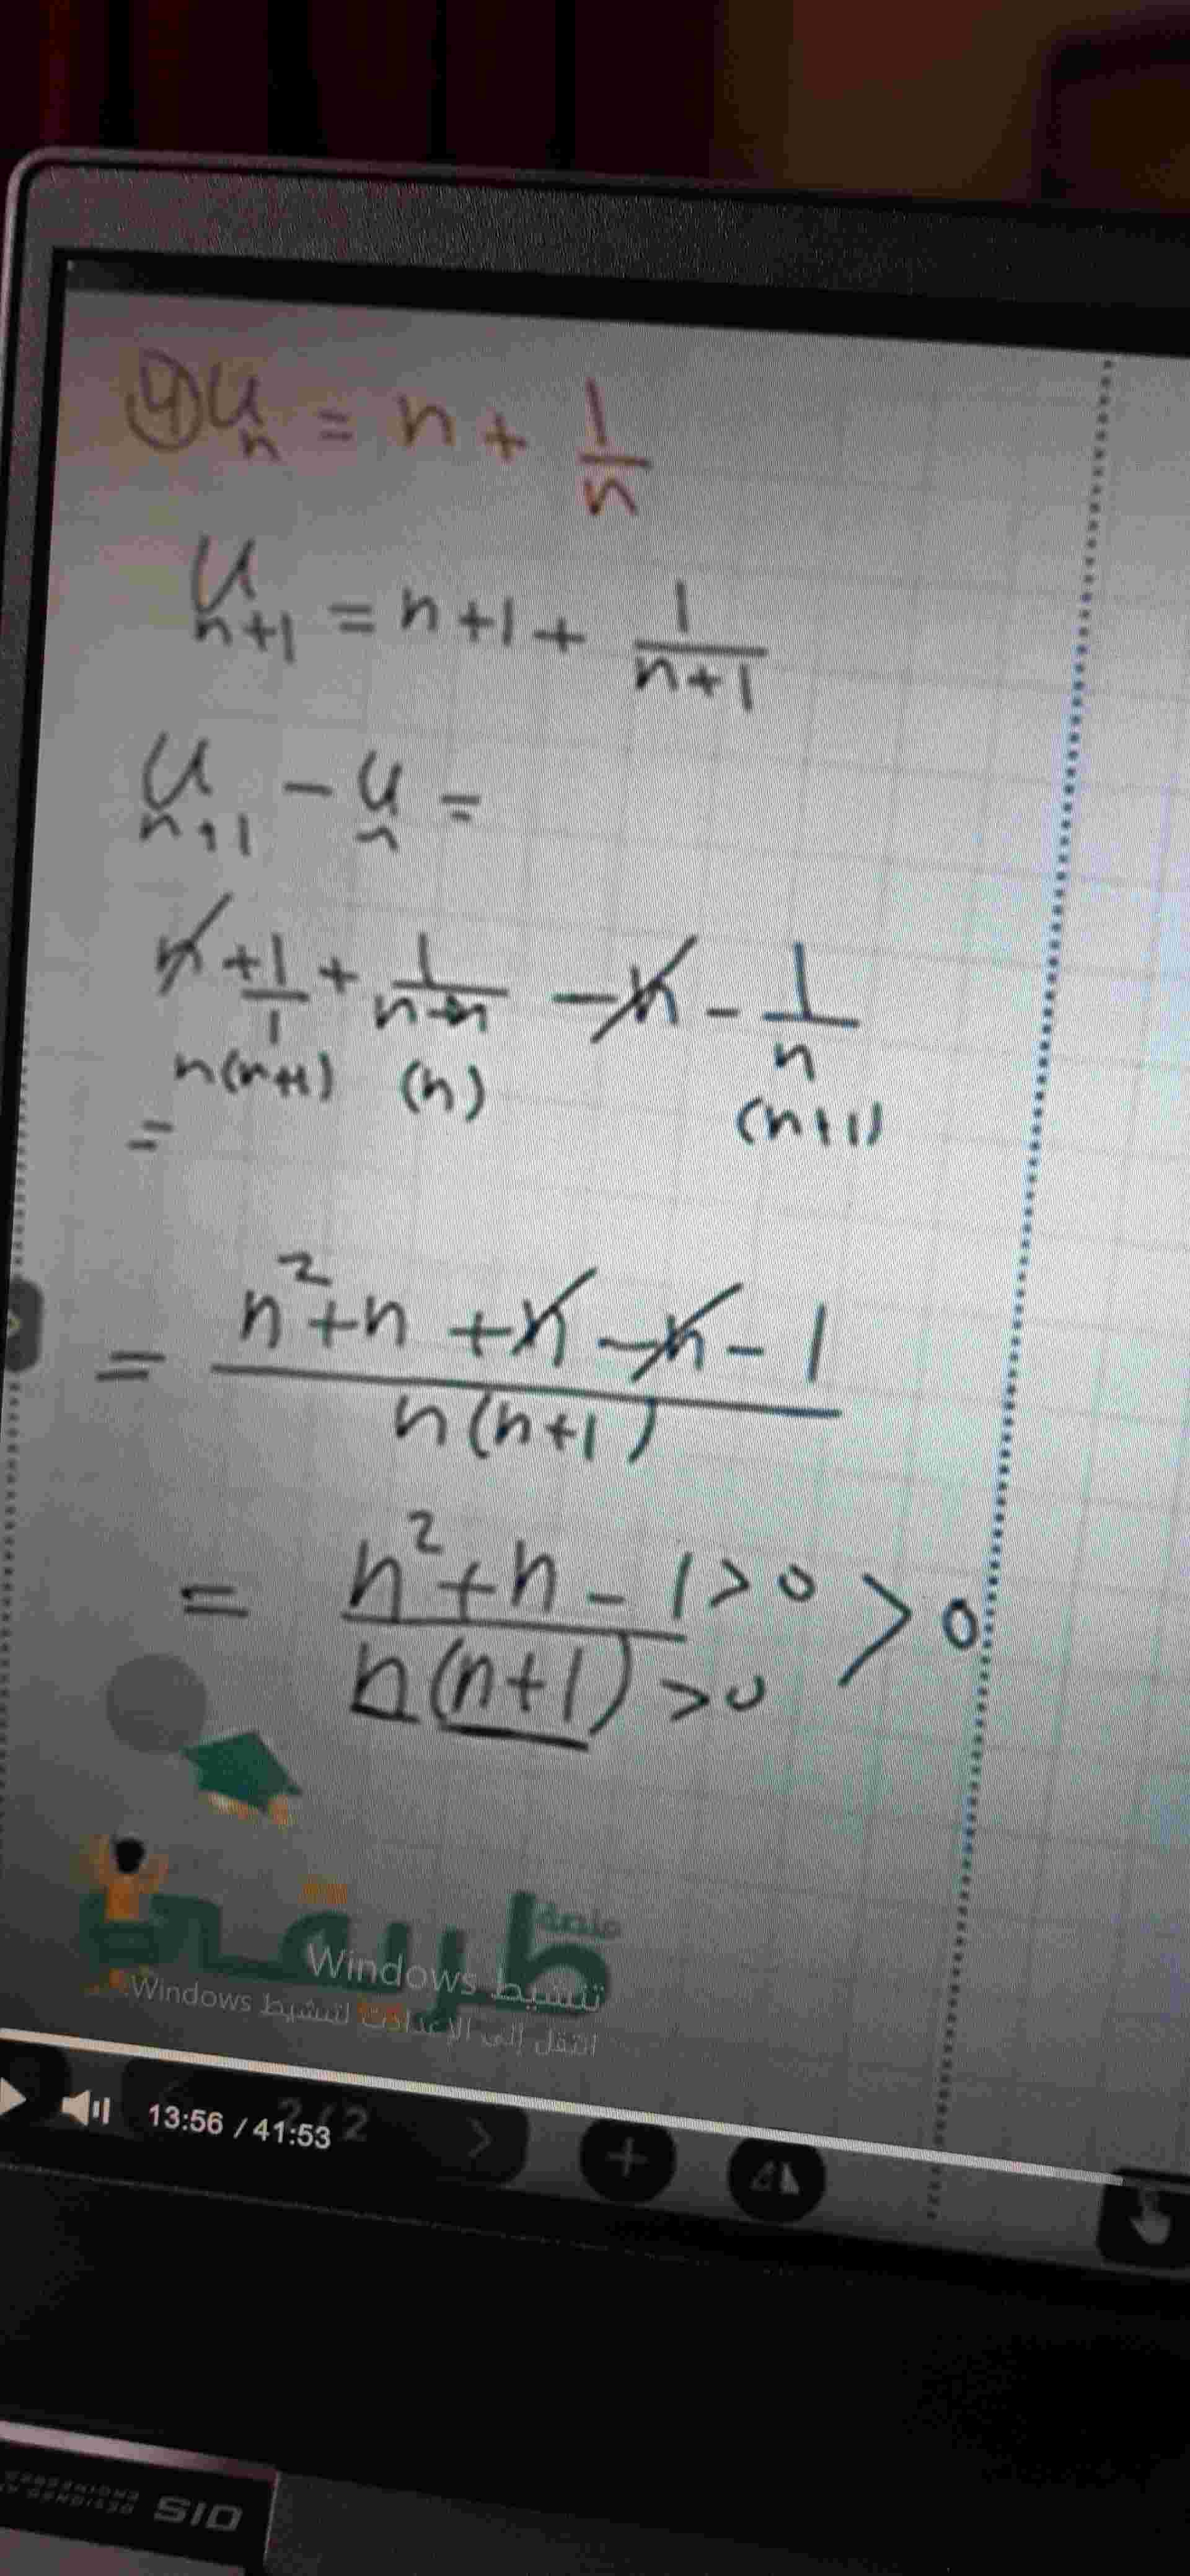 ④ Uₙ = n + 1/n
Uₙ₊₁ = n+1 + 1/(n+1)
Uₙ₊₁ - Uₙ =
n + 1/1 + 1/(n+1) - n - 1/n
n(n+1) (n) (n+1)
=
= (n² + n + n - n - 1) / n(n+1)
= (n² + n - 1 > 0) / (n(n+1) > 0) > 0
منصة
طريقة
تنشيط Windows
انتقل إلى الإعدادات لتنشيط Windows.
13:56 / 41:53
2 / 2